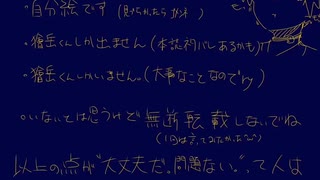 ・自分絵です(見られたらｶﾞﾒﾝ
・獪岳くんしか出ません(本誌初バレあるかも)
・獪岳くんしかいません。(大事なことなので(ry
・いないとは思うけど無断転載しないでね
(1回言ってみたかった
以上の点が"大丈夫だ。問題ない。"って人は